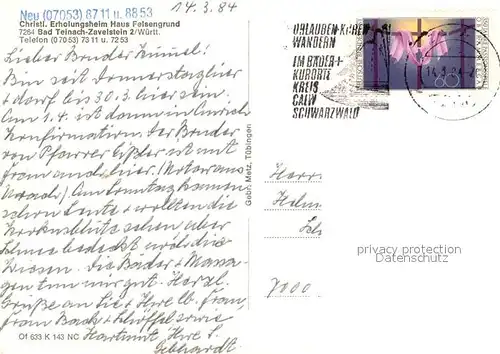 Neu (07053) 8711 u. 8853
14.3.84
Christl. Erholungsheim Haus Felsengrund
7264 Bad Teinach-Zavelstein 2/Württ.
Telefon (07053) 7311 u. 7253
Lieber Bruder
Bin seit Donnerstag hier
+ darf bis 30.3. hier sein.
Am 1.4. ist dann in
Konfirmation. Der Bruder
von Pfarrer ist mit
Frau auch hier (Notar aus
Urach). Am Sonntag kamen
schon Leute + wollten die
Krokusblüte sehen aber
Schnee bedeckt noch die
Wiesen. Die Bäder + Massa-
gen tun mir gut. Herzl.
Grüße an Sie + Ihre lb. Frau,
Frau + sowie
Ihre
Gebhardt.
Of 633 K 143 NC
Gebr. Metz, Tübingen
URLAUBEN-KUREN
WANDERN
IM BÄDER-+
KURORTE
KREIS
CALW
SCHWARZWALD
Herrn
7000
privacy protection
Datenschutz